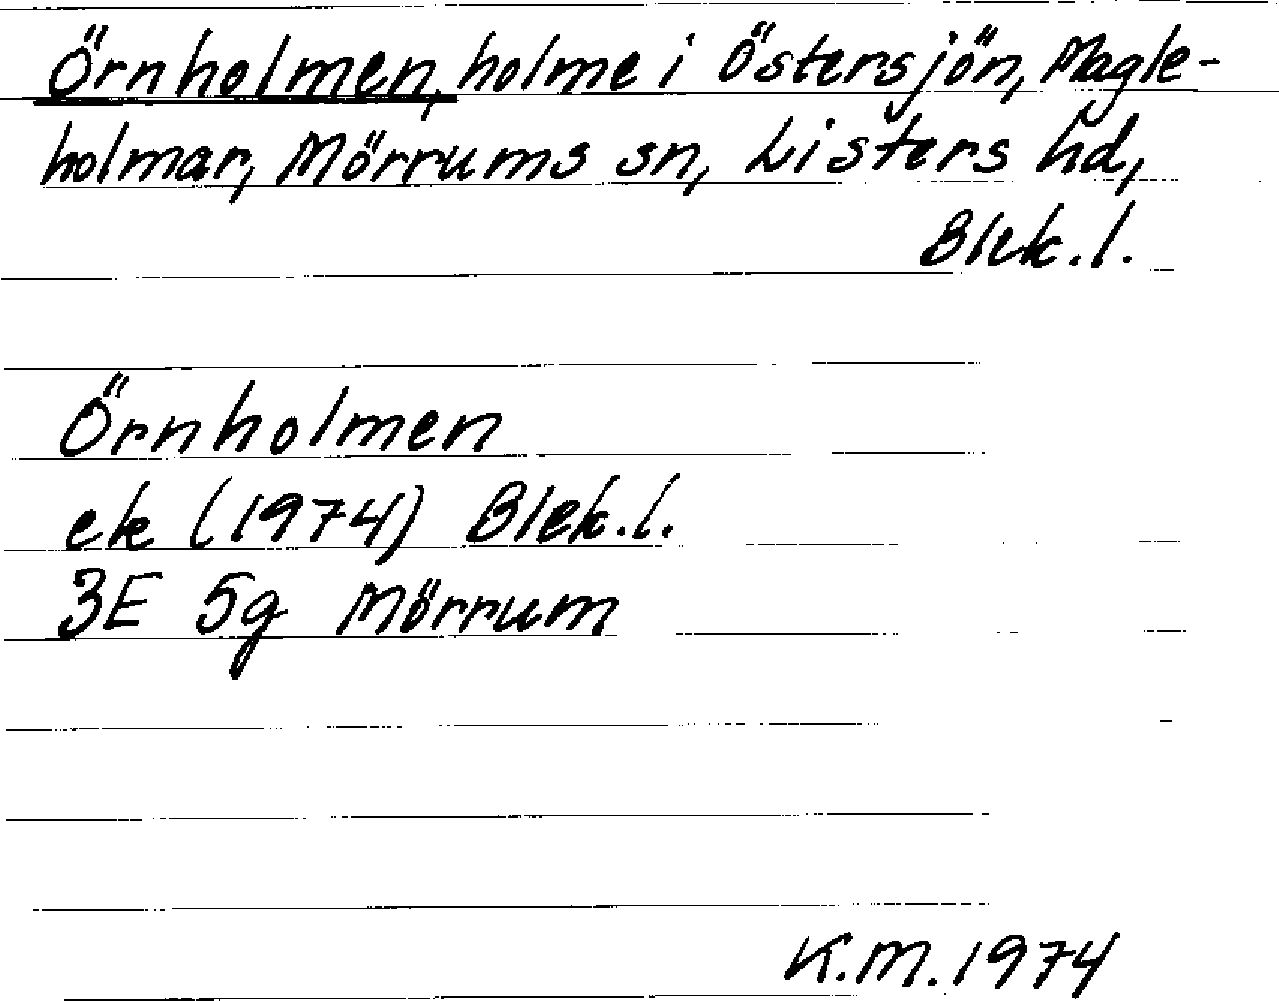 Örnholmen, holme i Östersjön, Magle-
holmar, Mörrums sn, Listers hd,
Blek.l.
Örnholmen
ek (1974) Blek.l.
3E 5g Mörrum
K.M. 1974